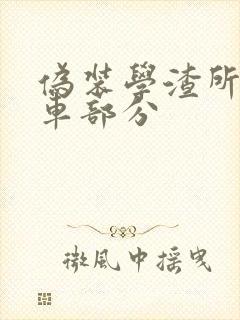 偽裝學渣所
車部分
微風中搖曳